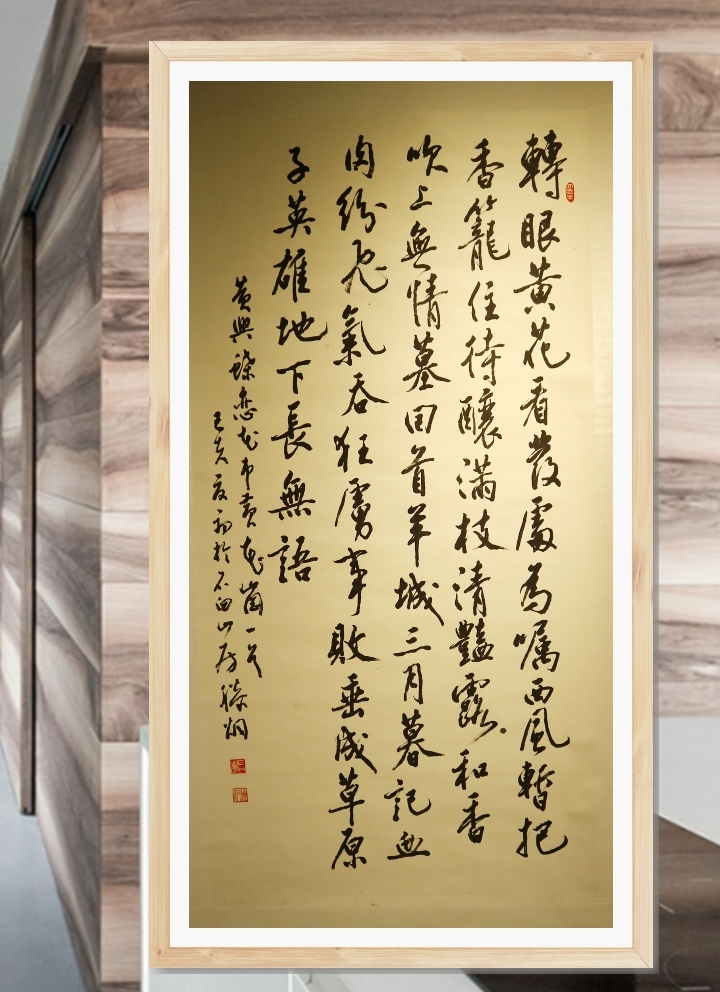 轉眼黃花看發處為囑西風暫把
香籠住待釀滿枝清豔露和香
吹上無情墓回首羊城三月暮記血
肉紛飛氣吞狂虜事敗垂成草原
子英雄地下長無語
黃興蝶戀花弔黃花崗一首
己亥夏初於石田山房滕烱